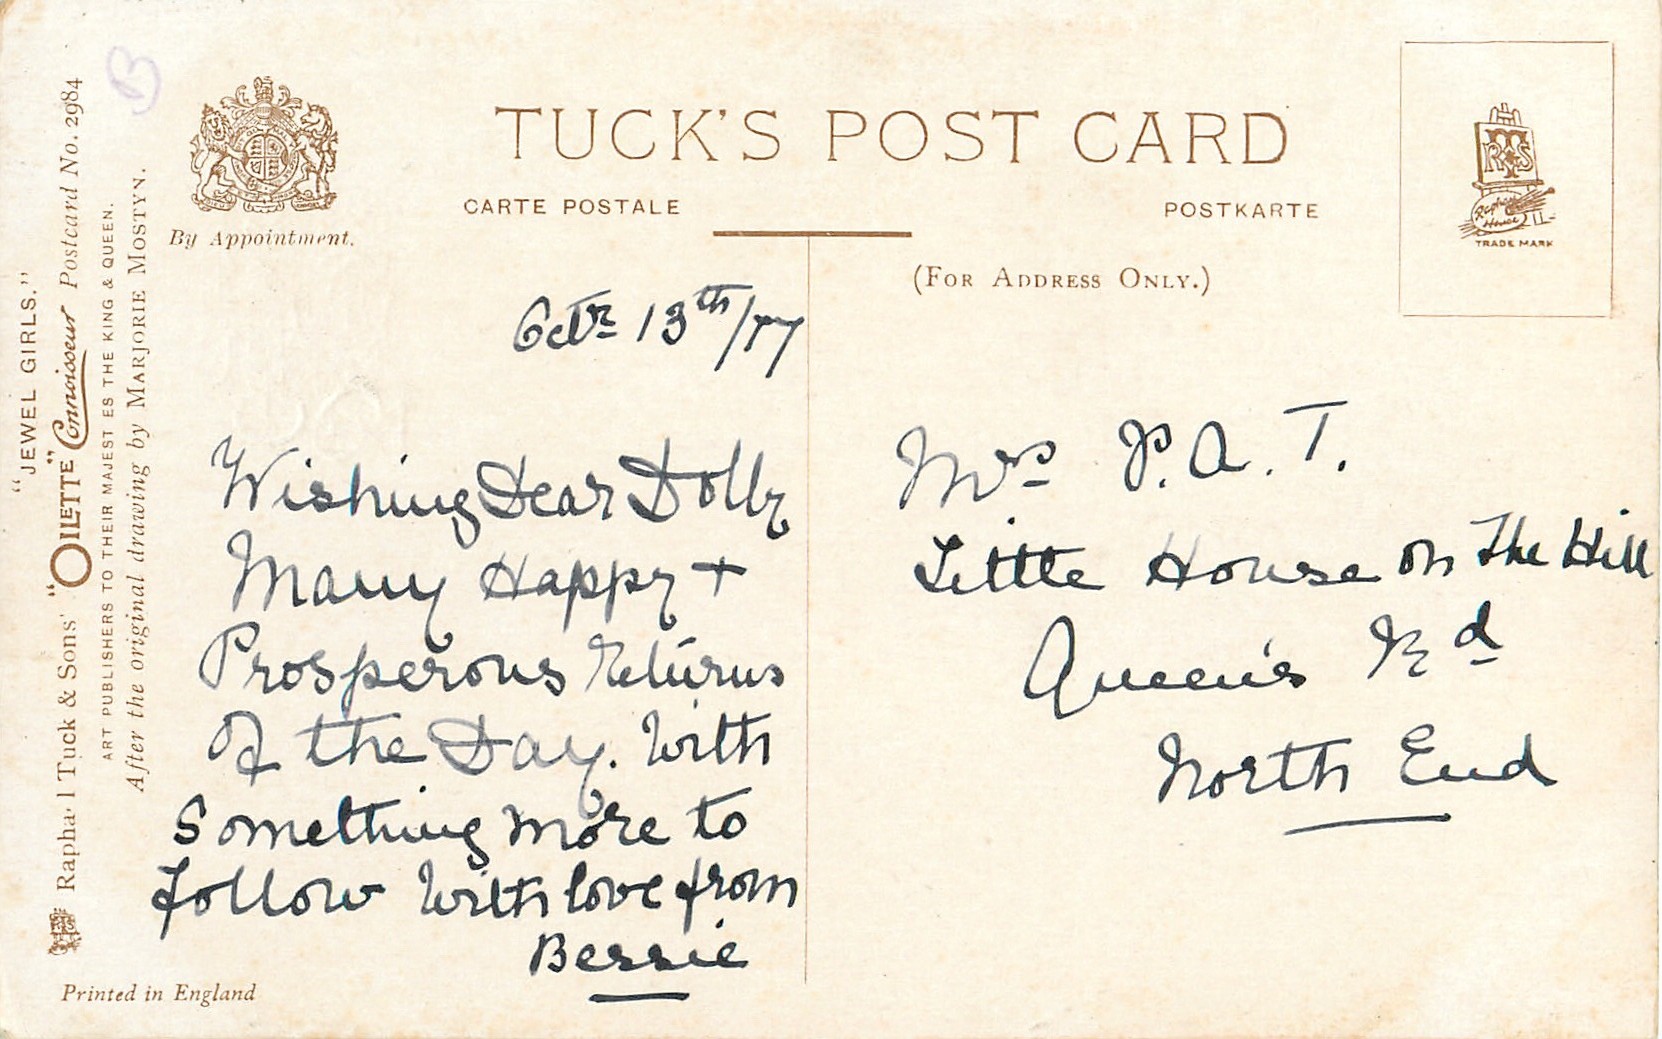 TUCK'S POST CARD
CARTE POSTALE
POSTKARTE
By Appointment.
(FOR ADDRESS ONLY.)
RTS
Raphael House
TRADE MARK
"JEWEL GIRLS."
Raphael Tuck & Sons' "OILETTE" Connoisseur Postcard No. 2984
ART PUBLISHERS TO THEIR MAJESTIES THE KING & QUEEN.
After the original drawing by MARJORIE MOSTYN.
Printed in England
Octr 13th/
Wishing Dear Dolly
Many Happy +
Prosperous Returns
Of the Day. With
Something more to
follow With love from
Bessie
Mrs P. A. T.
Little House on The Hill
Queen's Rd
North End